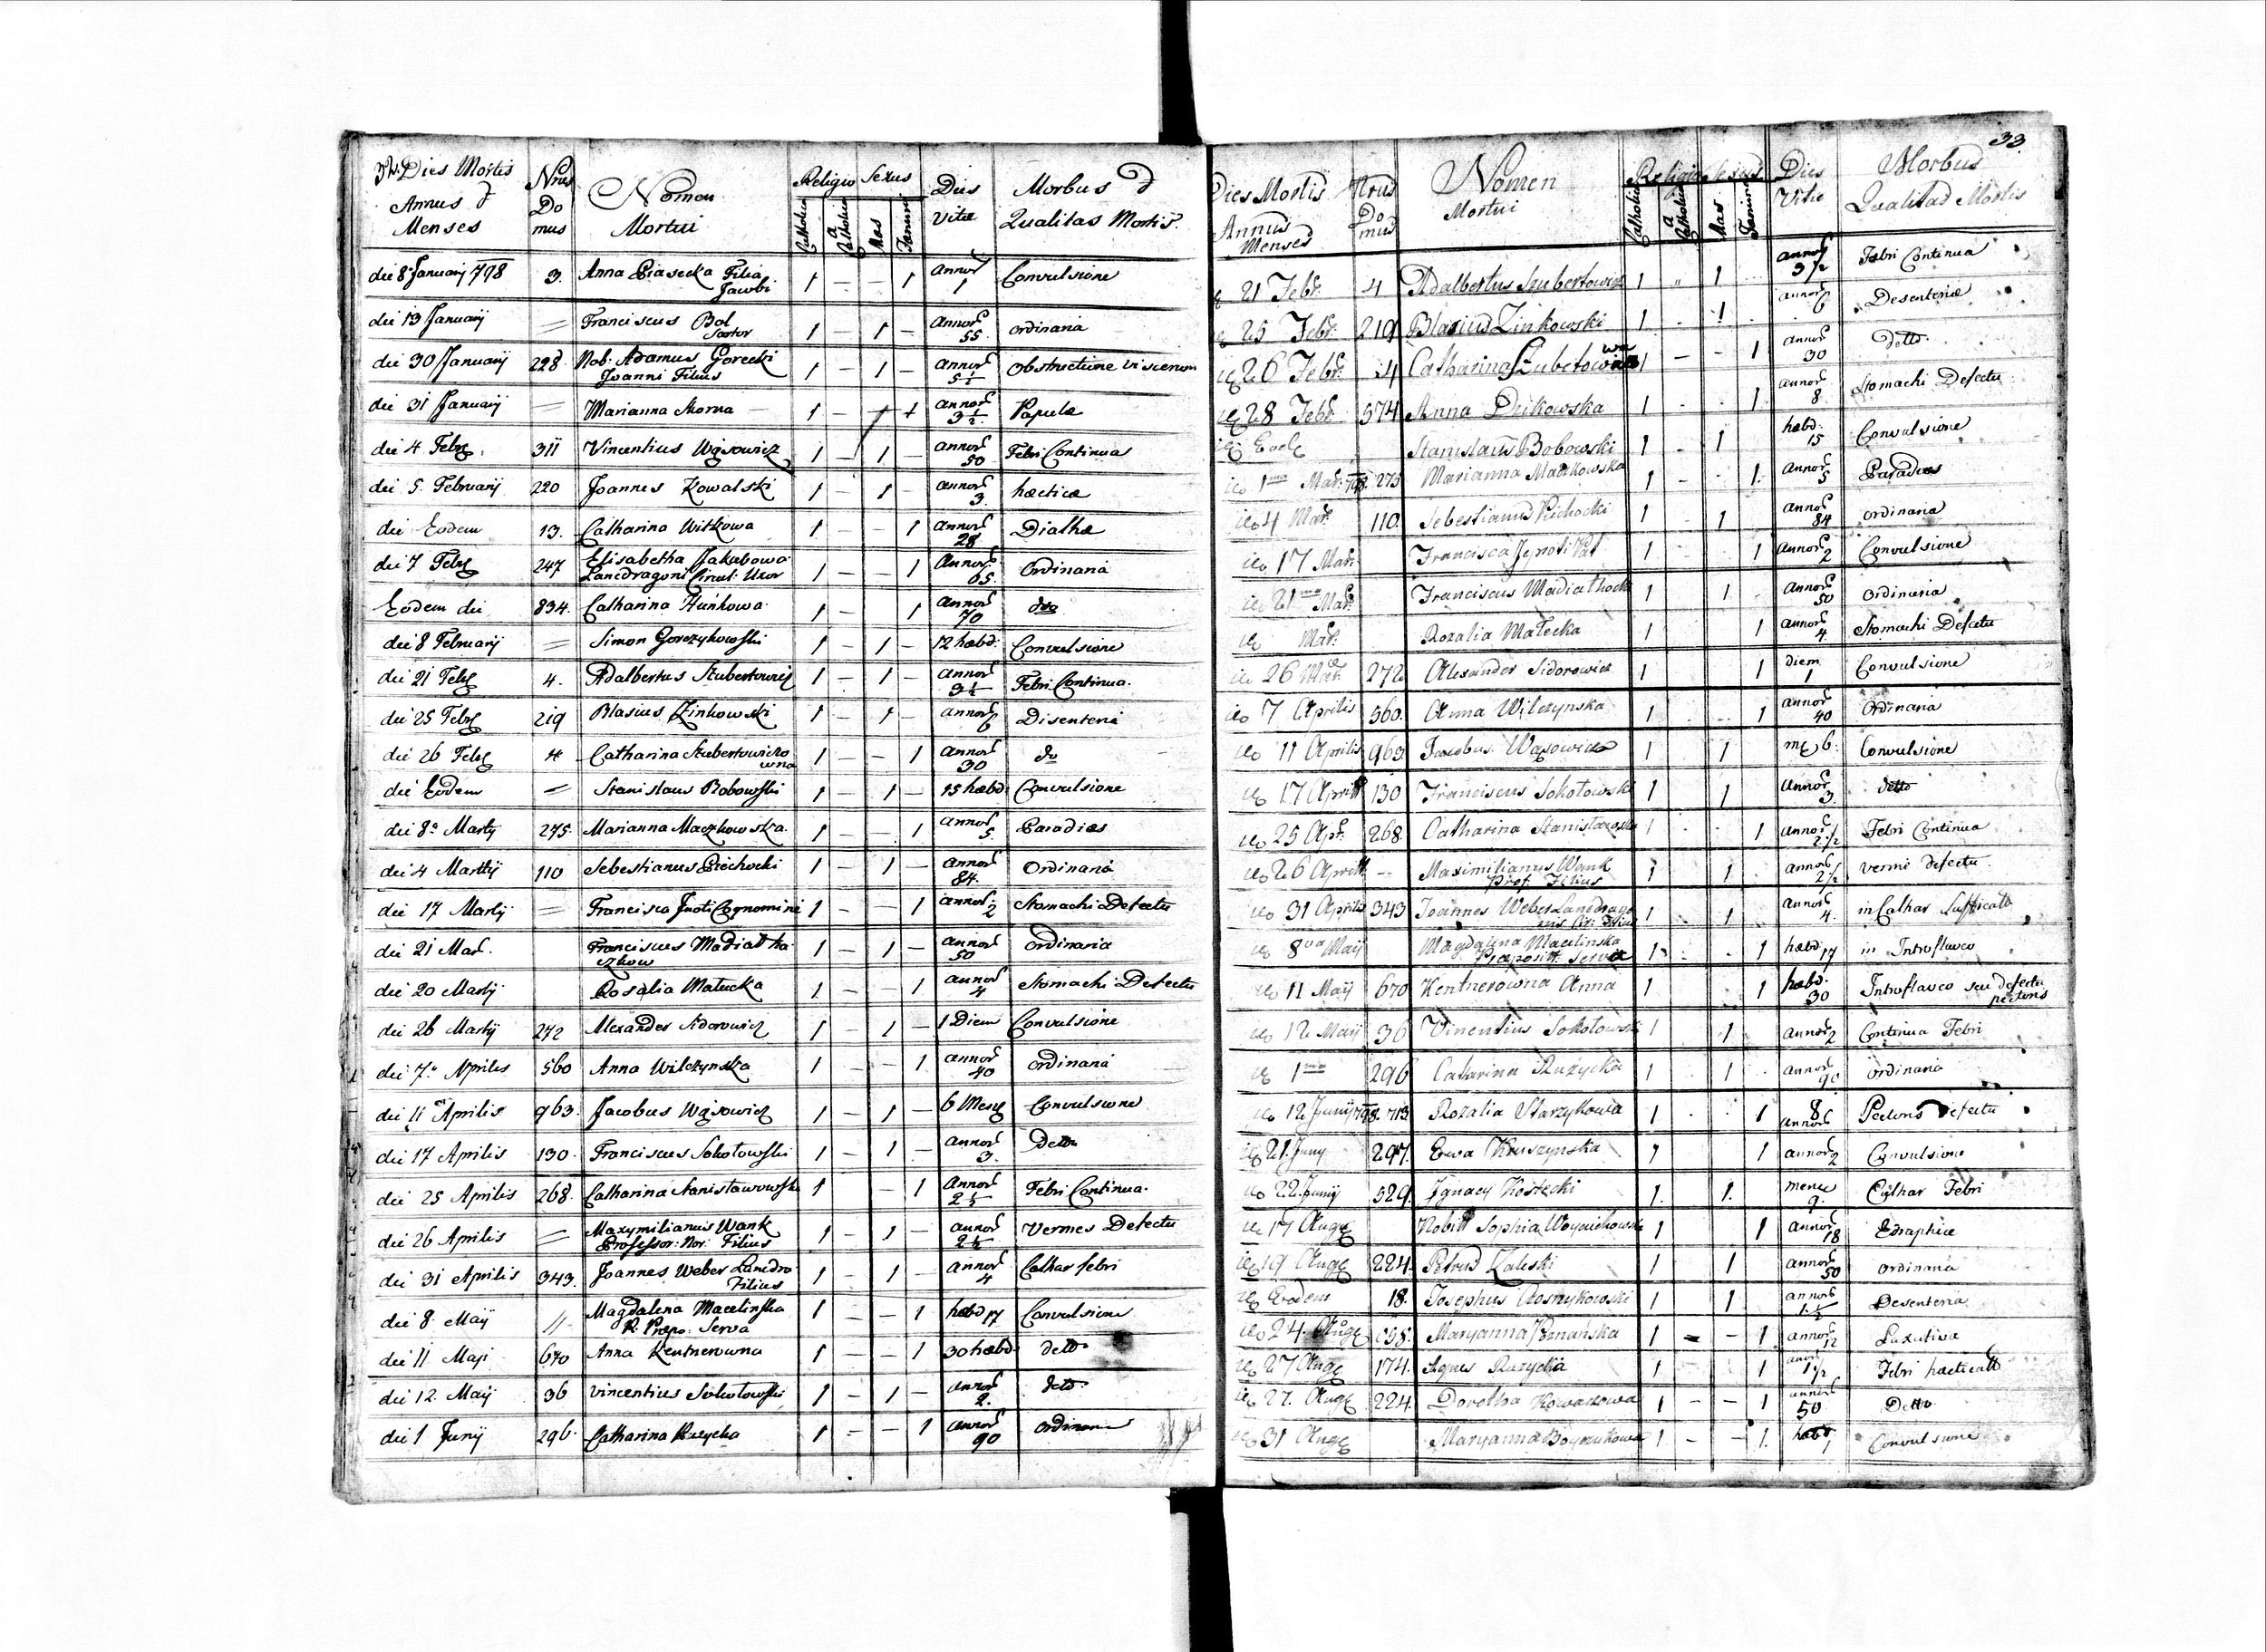 Dies Mortis Nrus Nomen Religio Sexus Dies Morbus &
Annus & Do Mortui Catholica a Catholica Mas Femini Vitæ Qualitas Mortis
Menses mus
die 8 Januarij 798 3. Anna Piasecka Filia Jacobi 1 — — 1 annor 1 Convulsione
die 13 Januarij = Franciscus Bol Sartor 1 — 1 — Annor 55. ordinaria
die 30 Januarij 228. Nob: Adamus Gorecki Joanni Filius 1 — 1 — Annor 5½ obstructione viscerum
die 31 Januarij = Marianna Skorna 1 — 1 1 annor 3½. Papulæ
die 4 Febr. 311 Vincentius Wąsowicz 1 — 1 — annor 50 Febri Continua
die 5. Februarij 220 Joannes Kowalski 1 — 1 — annor 3 hæctica
die Eodem 13. Catharina Witkowa 1 — — 1 annor 28
die 7 Febr 247 Elisabetha Jakubowa Uxor 1 — — 1 Annor 65. Ordinaria
Eodem die 834. Catharina Hańkowa 1 — 1 annor 70 dto
die 8 Februarij = Simon Gorczykowski 1 — 1 — 12 hæbd: Convulsione
die 21 Febr 4. Adalbertus Szubertowicz 1 — 1 — annor 3½ Febri Continua.
die 25 Febr 219 Blasius Zinkowski 1 — 1 — annor 6 Disenteria
die 26 Febr 4 Catharina Szubertowiczowna 1 — — 1 annor 30 do
die Eodem = Stanislaus Bobowski 1 — 1 — 15 hæbd: Convulsione
die 8a Martij 275. Marianna Maczkowska. 1 — — 1 annor 5. Paradies
die 4 Martij 110 Sebestianus Piechocki 1 — 1 — annor 84. Ordinaria
die 17 Martij = Francisca Jnoti Cognominis 1 — — 1 annor 2 Stomachi Defectu
die 21 Mar. Franciscus 1 — 1 — annor 50 ordinaria
die 20 Martij Rosalia Małecka 1 — — 1 annor 4 Stomachi Defectu
die 26 Martij 272 Alexander Sidorowicz 1 — 1 — 1 Diem Convulsione
die 7a Aprilis 560 Anna Wilczynska 1 — — 1 annor 40 ordinaria
die 11 Aprilis 963. Jacobus Wąsowicz 1 — 1 — 6 Mens Convulsione
die 17 Aprilis 130. Franciscus Sokołowski 1 — 1 — annor 3. Detto
die 25 Aprilis 268. Catharina Stanisławowska 1 — 1 Annor 2½ Febri Continua.
die 26 Aprilis = Maxymilianus Wank Professor: Nor: Filius 1 — 1 — annor 2½ Vermes Defectu
die 31 Aprilis 343. Joannes Weber Landra Filius 1 — 1 — annor 4 Cathar febri
die 8 Maij // Magdalena Macelinska R. Præpo: Serva 1 — — 1 hæbd 17 Convulsione
die 11 Maji 670 Anna Kentnerowna 1 — — 1 30 hæbd: detto
die 12. Maij 36 Vincentius Sokołowski 1 — 1 — annor 2. detto
die 1 Junij 296. Catharina Ruzycka 1 — — 1 annor 90 ordinaria
33
Dies Mortis Nrus Nomen Religio Sexus Dies Morbus
Annus Do Mortui Catholica a Catholica Mas Femini Vitæ Qualitas Mortis
Menses mus
21 Febr. 4 Adalbertus Szubertowicz 1 " 1 annor 3½ Febri Continua
25 Febr. 219 Blasius Zinkowski 1 . 1 annor 6 Desenteriæ
26 Febr. 4 Catharina 1 — - 1 annor 30 detto.
28 Febr. 574 Anna Dzikowska 1 . . 1 annor 8. Stomachi Defectu
Stanislaus Bobowski 1 . 1 hæbd: 15 Convulsione
1ma Mar. 798. 275 Marianna Maczkowska 1 - . 1. annor 5 Paradies
4 Mar. 110. Sebestianus Pichocki 1 . 1 annor 84 ordinaria
17 Mar. Francisca 1 - 1 annor 2 Convulsione
21ma Mar. Franciscus 1 1 . annor 50 ordinaria
Mar. Rozalia Małecka 1 1 annor 4. Stomachi Defectu
26 Mar. 272 Alexander Sidorowicz 1 1 diem 1 Convulsione
7 Aprilis 560. Anna Wilczynska 1 . . 1 annor 40 Ordinaria
11 Aprilis 963. Jacobus Wąsowicz 1 1 6. Convulsione
17 April 130 Franciscus Sokołowski 1 1 annor 3. detto
25 Apr. 268. Catharina Stanisławowska 1 . . 1 annor 2½ Febri Continua
26 April -- Maximilianus Wank Prof. Filius 1 1 . annor 2½ vermi defectu
31 Aprilis 343 Joannes Weber 1 . 1 annor 4. in Cathar Suffocatt
8va Maij Magdalena Macelinska Præposit. Serva 1 . . 1 hæbd 17 in Introflauco
11 Maij 670 Kentnerowna Anna 1 1 hæbd. 30 Introflauco seu defectu pectoris
12 Maij 36 Vincentius Sokołowski 1 1 annor 2 Continua Febri
1ma 296 Catarina Ruzycka 1 . 1 . annor 90 ordinaria
12 Junij 798. 713 Rozalia Starzykowa 1 . . 1 8 annor Pectoris defectu
21. Juny 297. Ewa Kruszynska 1 1 annor 2 Convulsione
22. Junij 529. Ignacy Kostecki 1. 1. mense 9. Cathar Febri
17 Aug Nobill Sophia Woyciechowska 1 1 annor 18
19 Aug 224. Petrus Zaleski 1 1 annor 50 ordinaria
Eodem 18. Josephus Rosnykowski 1 1 annor 1.½ Desenteria
24. Aug Maryanna Poznańska 1 — - 1 annor 12 Laxativa
27 Aug 174. Agnes Ruzycka 1 1 anor 1½ Febri hæcticatt
27. Aug 224. Dorotha Kowalzowa 1 — — 1 annor 50 Detto
31 Aug Maryanna 1 — — 1. hæbd 1 Convulsione